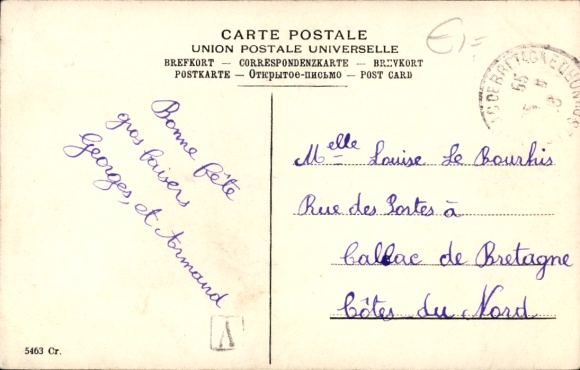 CARTE POSTALE
UNION POSTALE UNIVERSELLE
BREFKORT — CORRESPONDENZKARTE — BREVKORT
POSTKARTE — Открытое-письмо — POST CARD
Bonne fête
gros baisers
Georges, et Armand
Melle Louise Le Bourhis
Rue des Portes à
Callac de Bretagne
Côtes du Nord
V
5463 Cr.